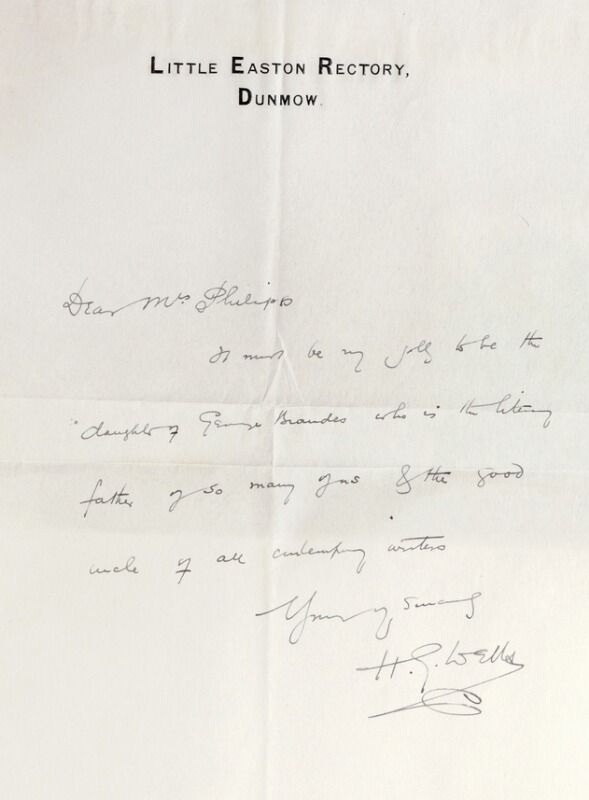 LITTLE EASTON RECTORY,
DUNMOW.
Dear Mrs Philipps
It must be very jolly to be the
daughter of George Brandes who is the literary
father of so many of us & the good
uncle of all contemporary writers
Yours very sincerely
H. G. Wells